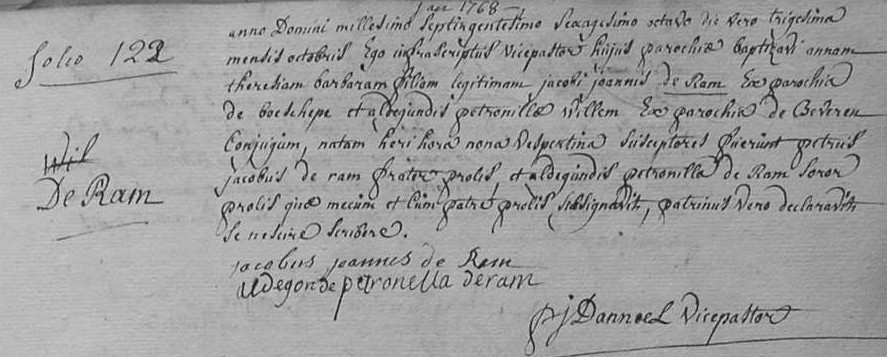 1768
anno Domini millesimo septingentesimo sexagesimo octavo die vero trigesima
folio 122
mensis octobris Ego infrascriptus vicepastor hujus parochiæ baptizavi annam
theresiam barbaram filiam legitimam jacobi joannis de Ram Ex parochia
de boeschepe et aldegundis petronillæ willem Ex parochia de Beveren
Conjugum, natam heri hora nona vespertina susceptores fuerunt petrus
De Ram
jacobus de ram frater prolis, et aldegundis petronilla de Ram soror
prolis quæ mecum et cum patre prolis subsignavit, patrinus vero declaravit
se nescire scribere.
jacobus joannes de Ram
aldegonde petronella deram
pj Dannoel vicepastor